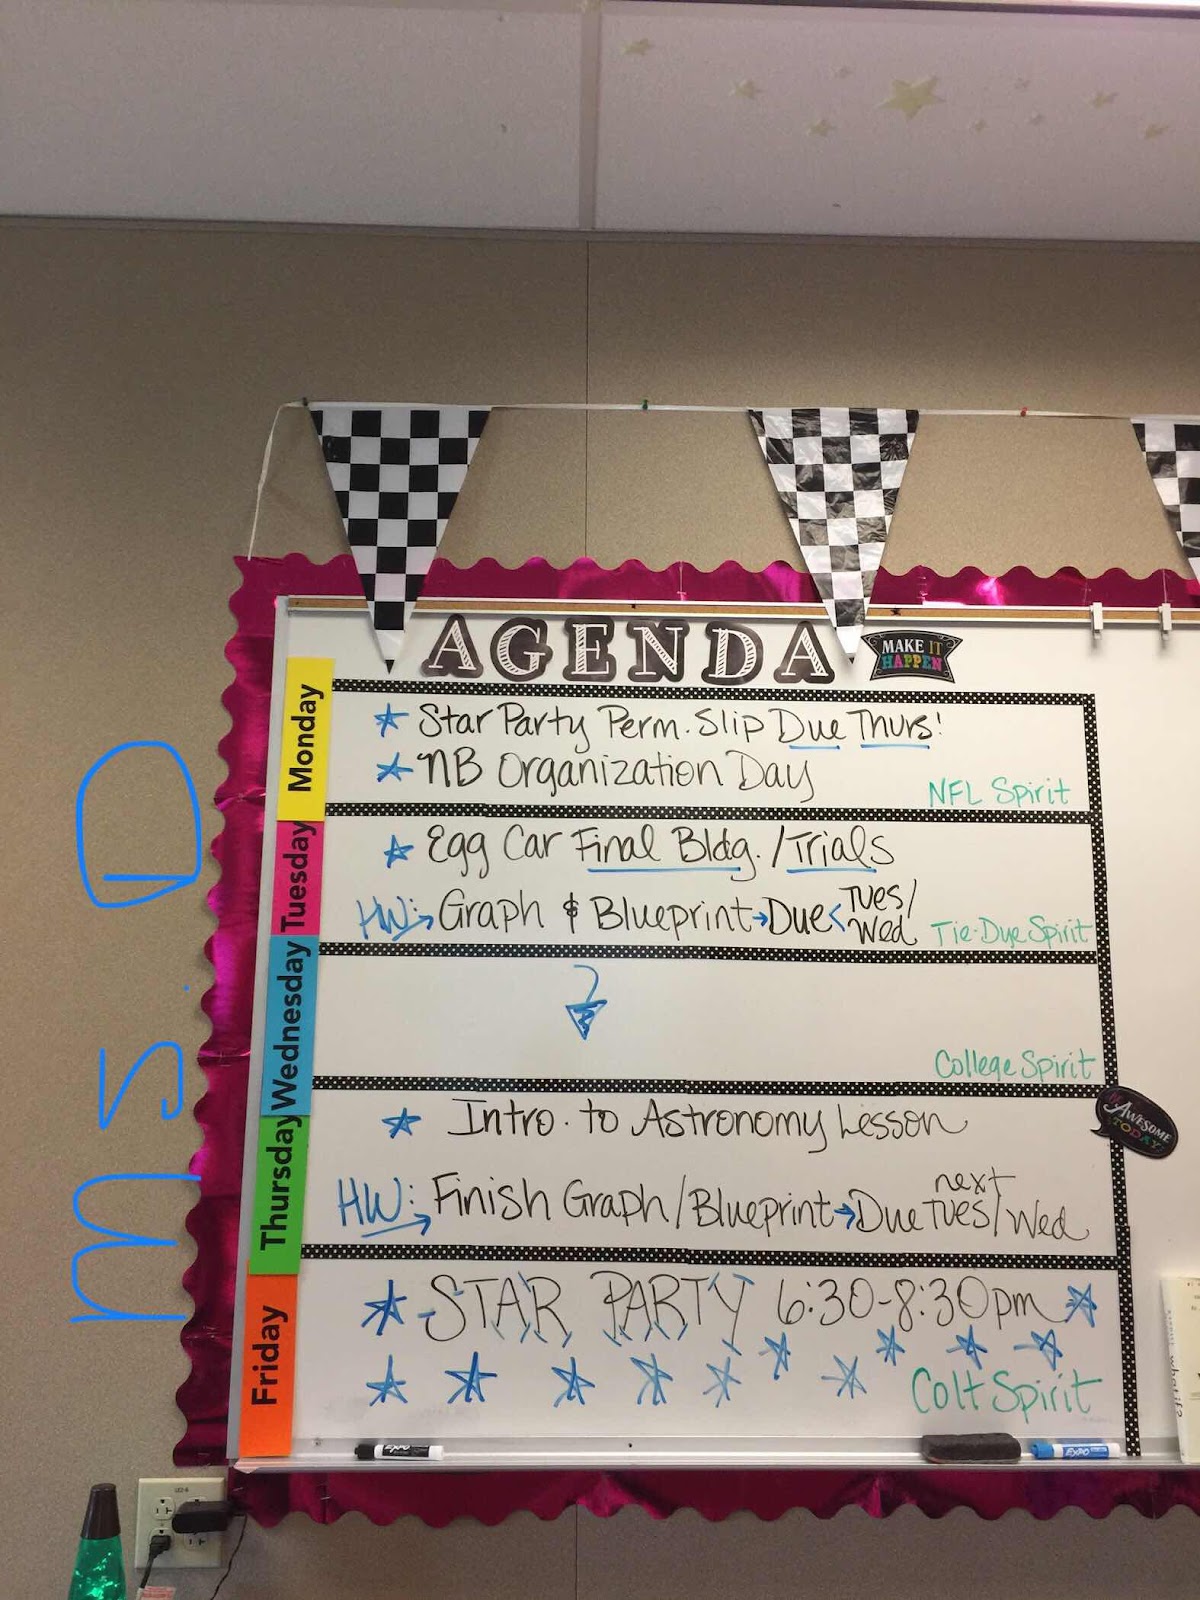 AGENDA
MAKE IT
HAPPEN
Monday
Star Party Perm. Slip Due Thurs!
NB Organization Day
NFL Spirit
Tuesday
Egg Car Final Bldg. / Trials
HW: → Graph & Blueprint → Due < Tues/
Wed
Tie-Due Spirit
Wednesday
College Spirit
Thursday
Intro. to Astronomy Lesson
HW: → Finish Graph/Blueprint → Due next
Tues/Wed
AWESOME
TODAY
Friday
STAR PARTY 6:30-8:30pm
Colt Spirit
EXPO
EXPO
Ms. D